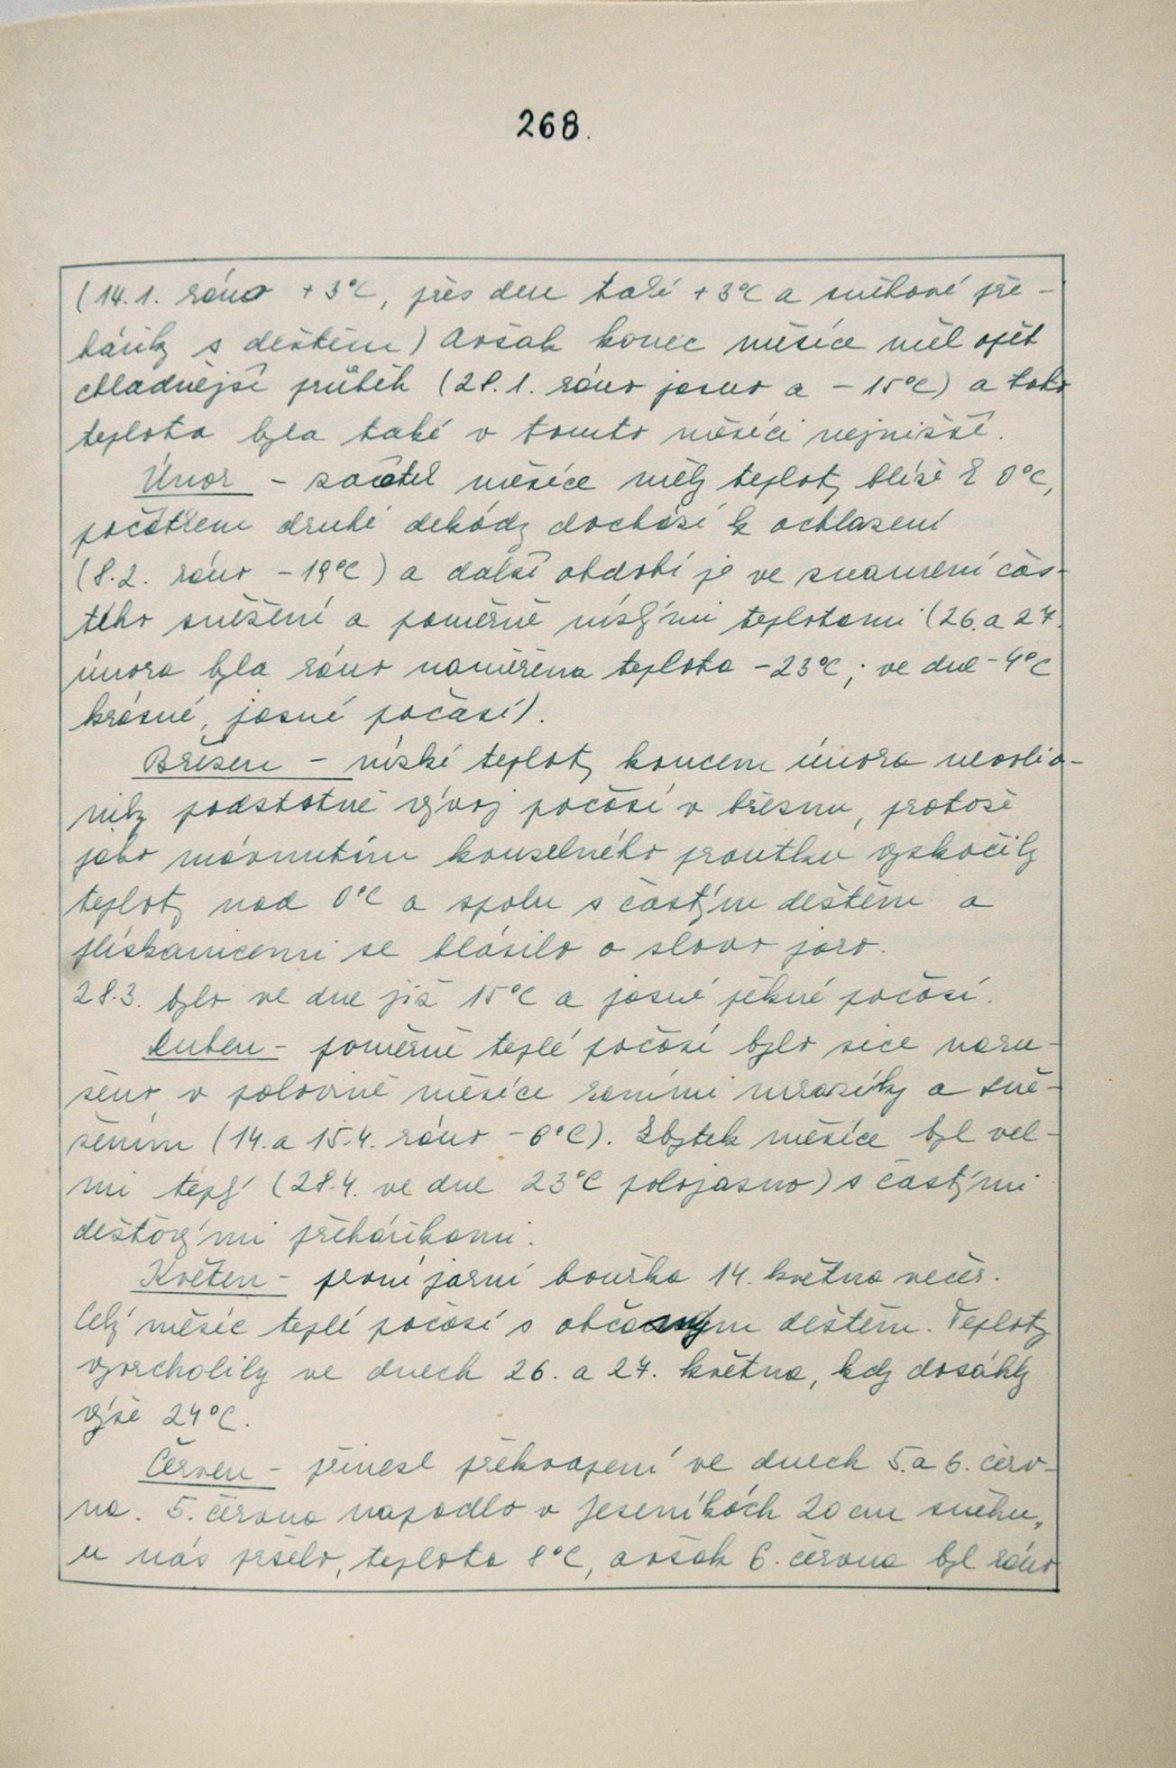 268.
(14.1. ráno +3°C, přes den také +3°C a sněhové pře-
háňky s deštěm) Avšak konec měsíce měl opět
chladnější průběh (28.1. ráno jasno a -15°C) a tato
teplota byla také v tomto měsíci nejnižší.
Únor - začátek měsíce měly teploty blíže k 0°C,
počátkem druhé dekády dochází k ochlazení
(8.2. ráno -19°C) a další období je ve znamení čas-
tého sněžení a poměrně nízkými teplotami (26. a 27.
února byla ráno naměřena teplota -23°C; ve dne -4°C
krásné, jasné počasí).
Březen - nízké teploty koncem února neovliv-
nily podstatně vývoj počasí v březnu, protože
jako mávnutím kouzelného proutku vyskočily
teploty nad 0°C a spolu s častým deštěm a
plískanicemi se hlásilo o slovo jaro.
28.3. bylo ve dne již 15°C a jasné pěkné počasí.
Duben - poměrně teplé počasí bylo sice naru-
šeno v polovině měsíce ranními mrazíky a sně-
žením (14. a 15.4. ráno -6°C). Zbytek měsíce byl vel-
mi teplý (28.4. ve dne 23°C polojasno) s častými
dešťovými přeháňkami.
Květen - první jarní bouřka 14. května večer.
Celý měsíc teplé počasí s občasným deštěm. Teploty
vyvrcholily ve dnech 26. a 27. května, kdy dosáhly
výše 24°C.
Červen - přinesl překvapení ve dnech 5. a 6. červ-
na. 5. června napadlo v Jeseníkách 20 cm sněhu,
u nás pršelo, teplota 8°C, avšak 6. června byl ráno